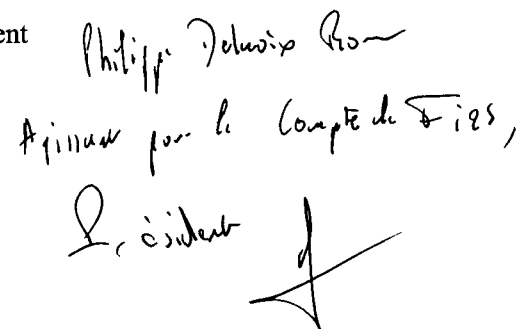 ent
Philippe Delwoix
Agissant pour le Compte de
Président